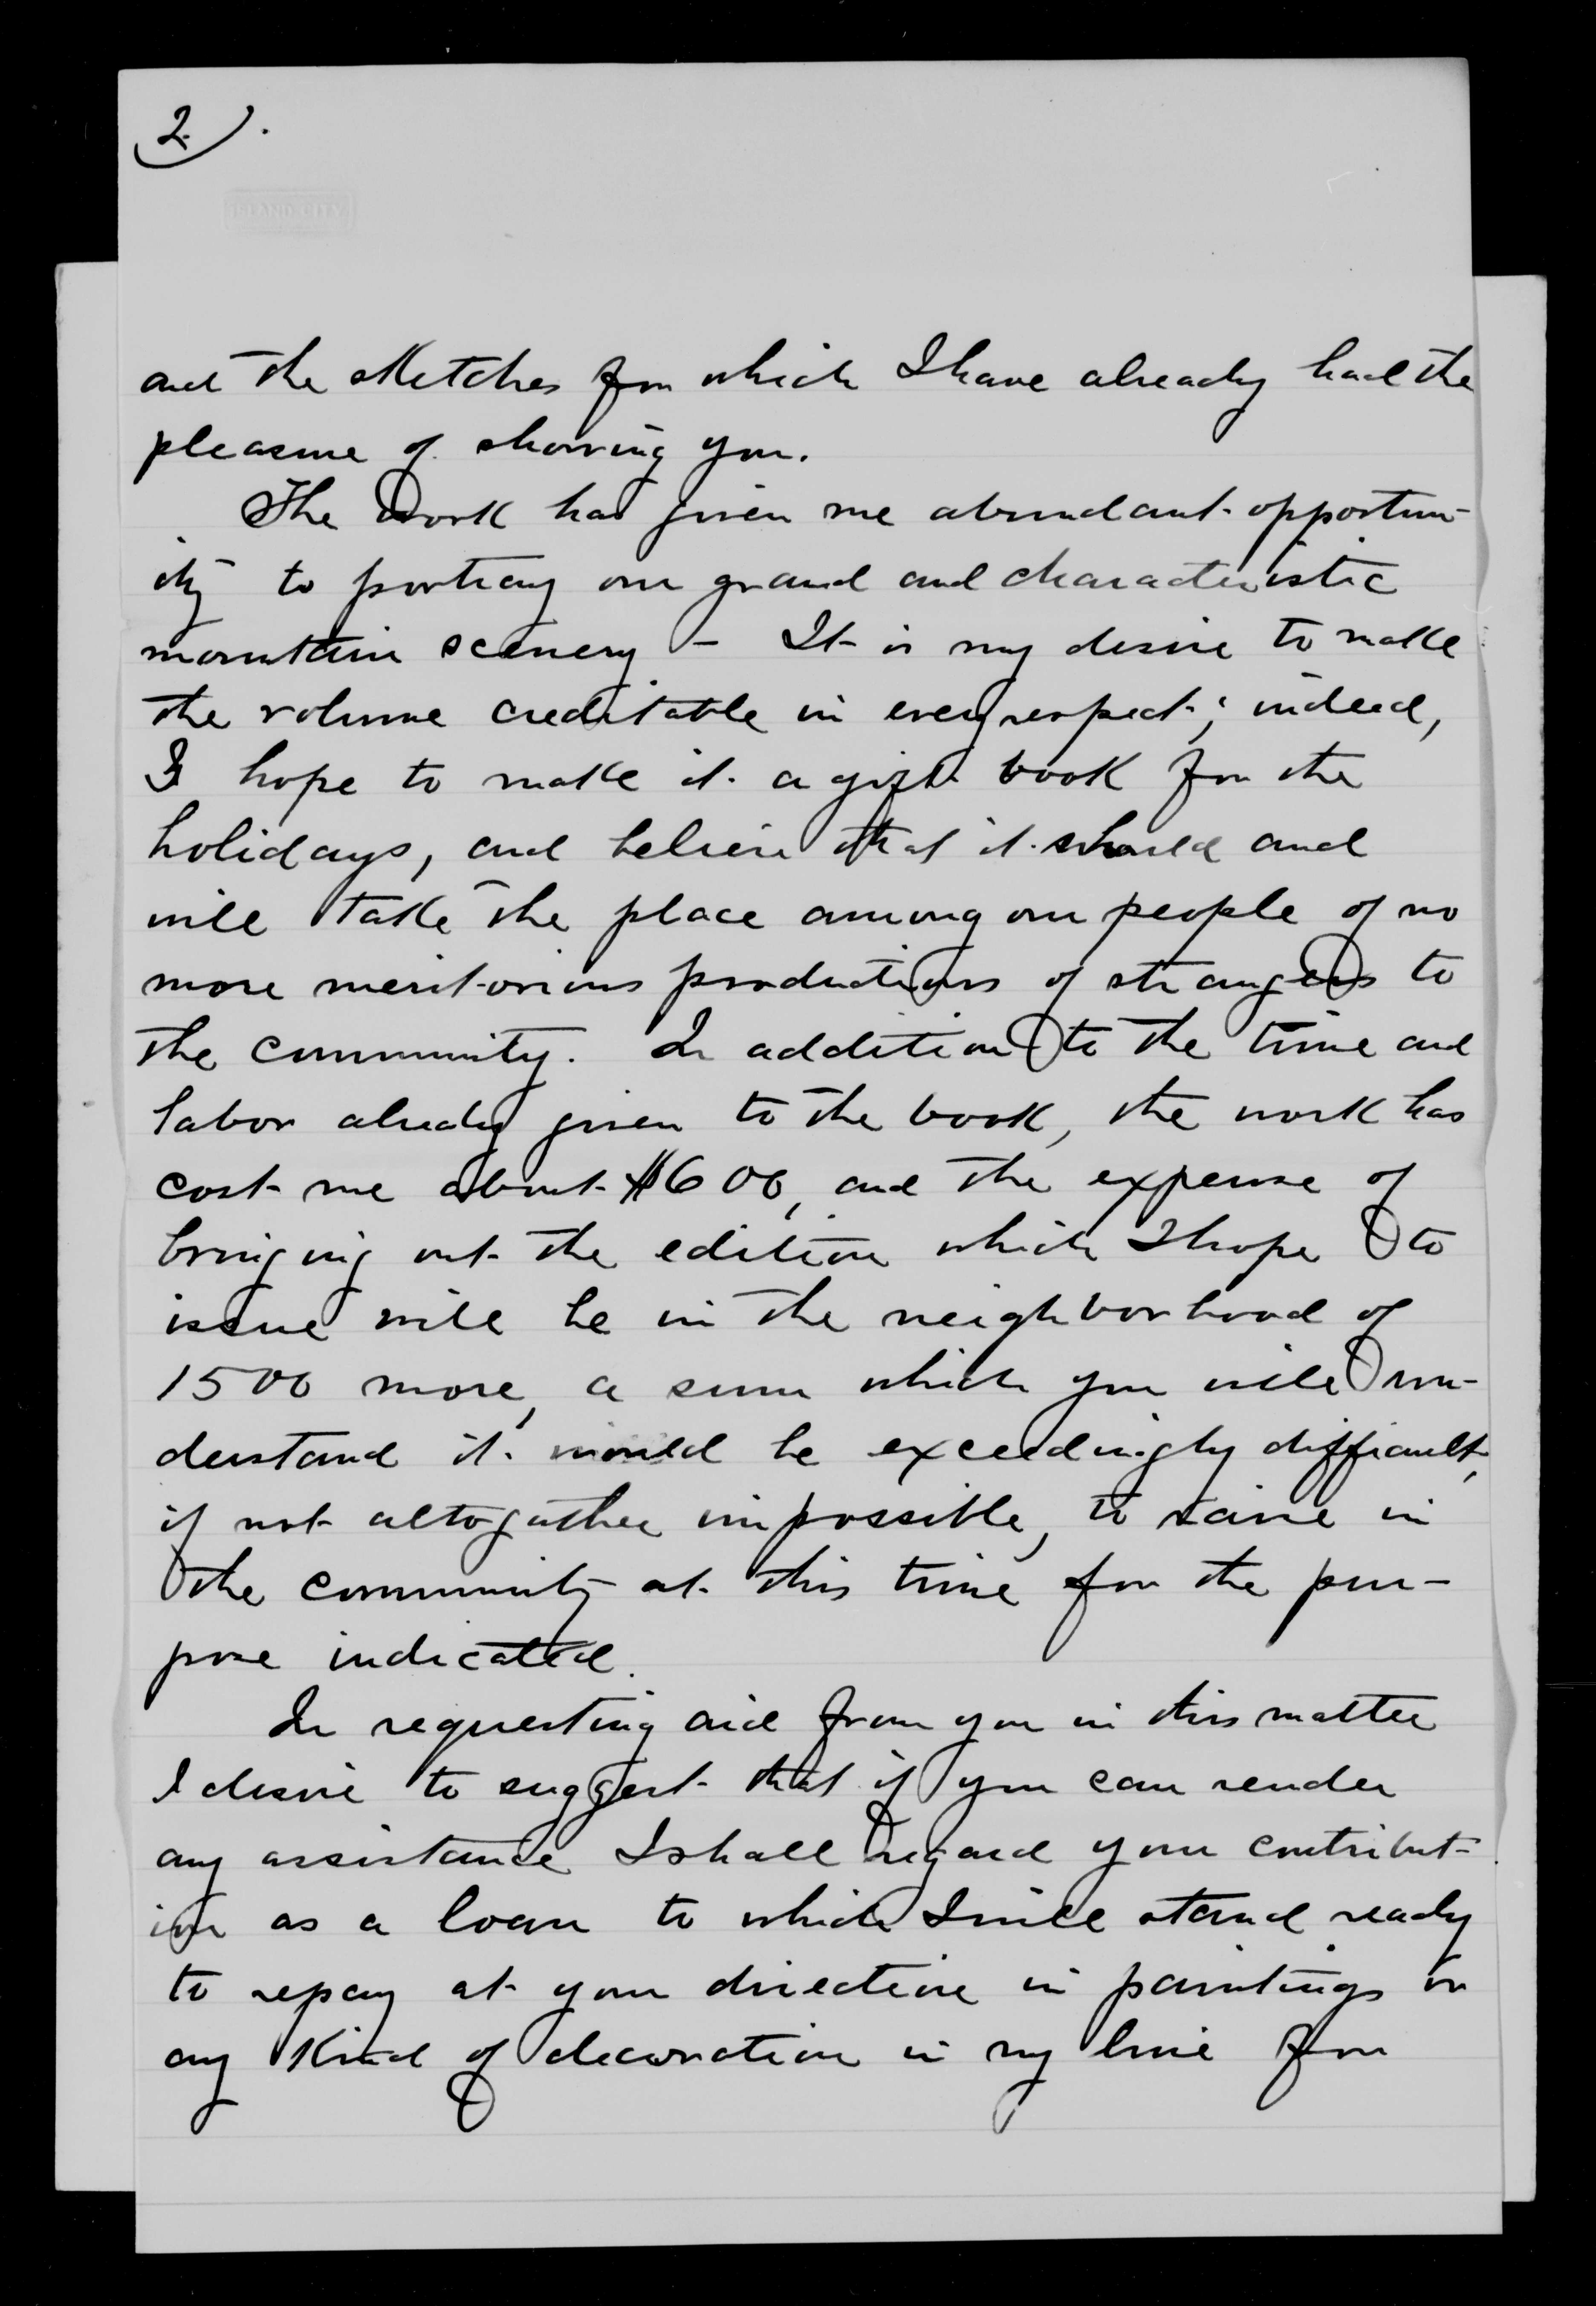 2.
ISLAND CITY
and the sketches for which I have already had the
pleasure of showing you.
The work has given me abundant opportun-
ity to portray our grand and characteristic
mountain scenery - It is my desire to make
the volume creditable in every respect; indeed,
I hope to make it a gift book for the
holidays, and believe that it should and
will take the place among our people of no
more meritorious productions of strangers to
the community. In addition to the time and
labor already given to the book, the work has
cost me about $600, and the expense of
bringing out the edition which I hope to
issue will be in the neighborhood of
1500 more, a sum which you will un-
derstand it would be exceedingly difficult,
if not altogather impossible, to raise in
the community at this time for the pur-
pose indicated.
In requesting aid from you in this matter
I desire to suggest that if you can render
any assistance I shall regard your contribut-
ion as a loan to which I will stand ready
to repay at your direction in paintings or
any kind of decoration in my line for